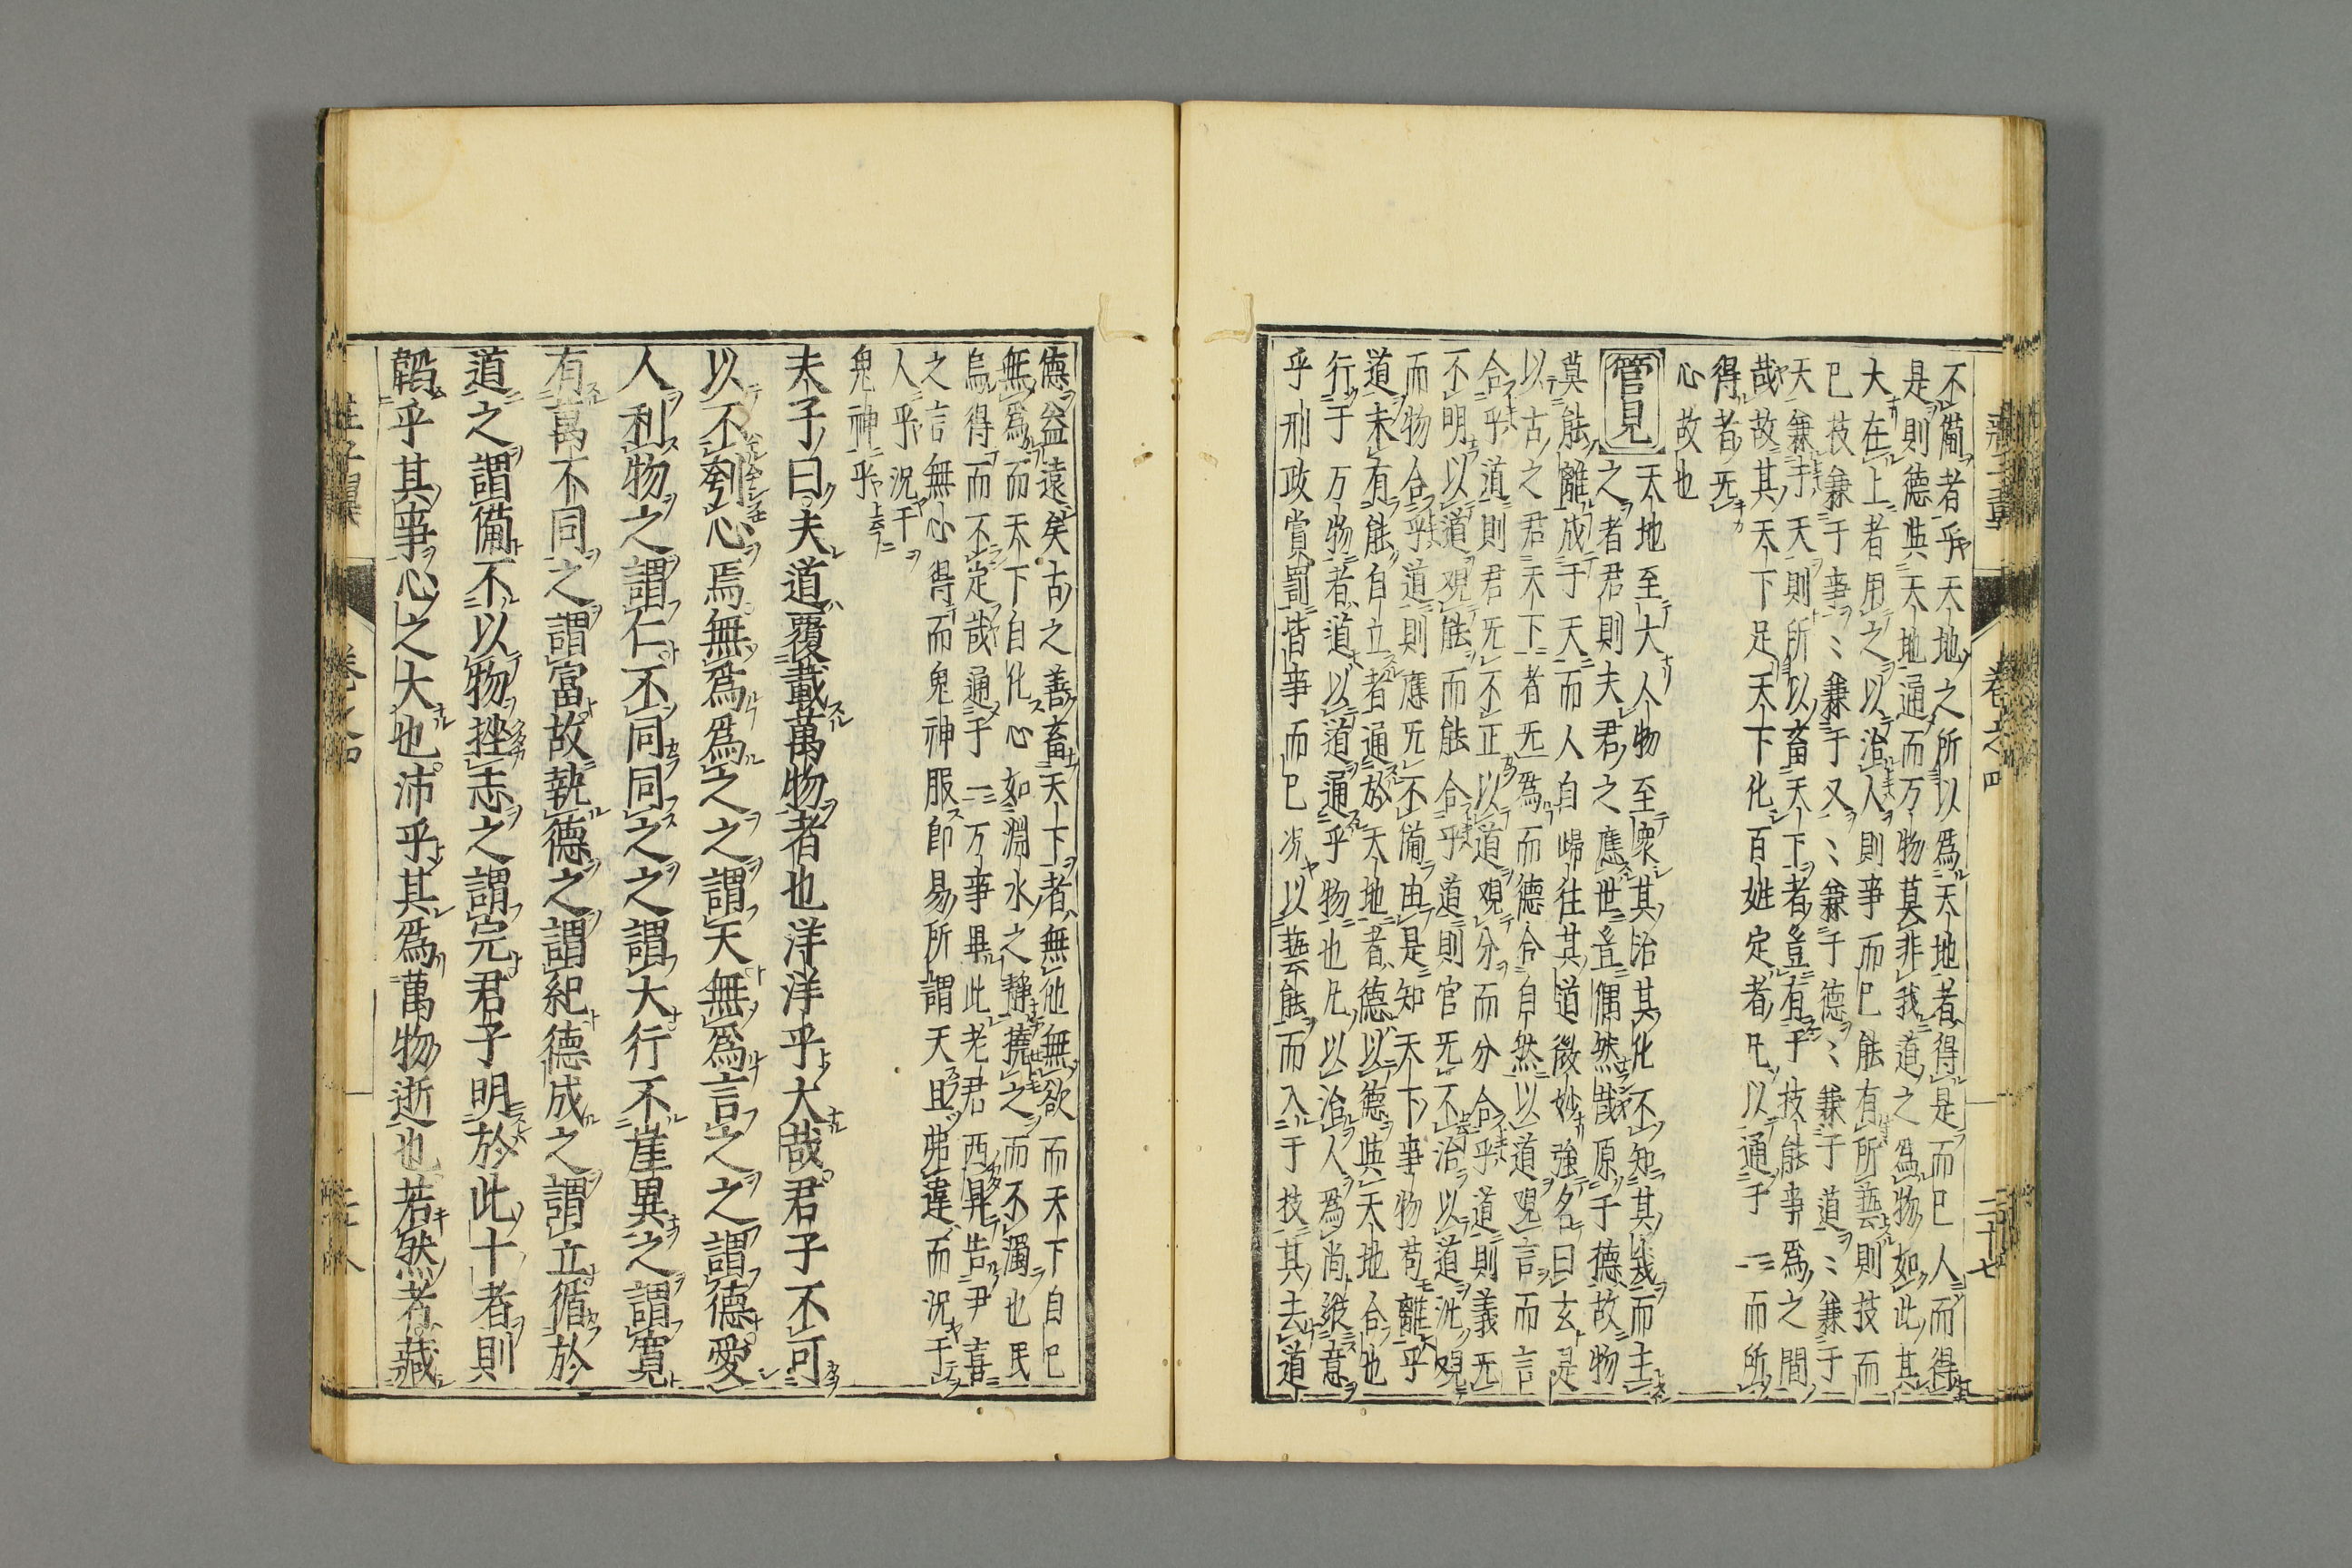 不備者乎天地之所以爲天地者得是而已人而得
是則德與天地通而万物莫非我道之爲物如此其
大在上者用之以治人則事而已能有所藝則技而
已技兼于事〻兼于又〻兼于德〻兼于道〻兼于
天兼于天則所以畜天下者豈有于技能事爲之間
哉故其天下足天下化百姓定者凡以通于一而所
得者无
心故也
管見 天地至大人物至衆其治其化不知其幾而主
之者君則夫君之應世豈偶然哉原于德故物
莫能離成于天而人自歸往其道微妙強名曰玄是
以古之君天下者无爲而德合自然以道觀言而言
合乎道則君无不正以道觀分而分合乎道則義无
不明以道觀能而能合乎道則官无不治以道汎觀
而物合乎道則應无不備由是知天下事物苟離乎
道未有能自立者通於天地者德以德與天地合也
行于万物者道以道通乎物也凡以治人爲尚縱意
乎刑政賞罰皆事而已況以藝能而入于技其去道
卷之四
二十七
德益遠矣古之善畜天下者無他無欲而天下自已
無爲而天下自化心如淵水之靜撓之而不濁也民
烏得而不定哉通于一万事畢此老君西昇告尹喜
之言無心得而鬼神服即易所謂天且弗違而況于
人乎況于
鬼神乎
夫子曰夫道覆載萬物者也洋洋乎大哉君子不可
以不刳心焉無爲爲之之謂天無爲言之之謂德愛
人利物之謂仁不同同之之謂大行不崖異之謂寬
有萬不同之謂富故執德之謂紀德成之謂立循於
道之謂備不以物挫志之謂完君子明於此十者則
韜乎其事心之大也沛乎其爲萬物逝也若然者藏